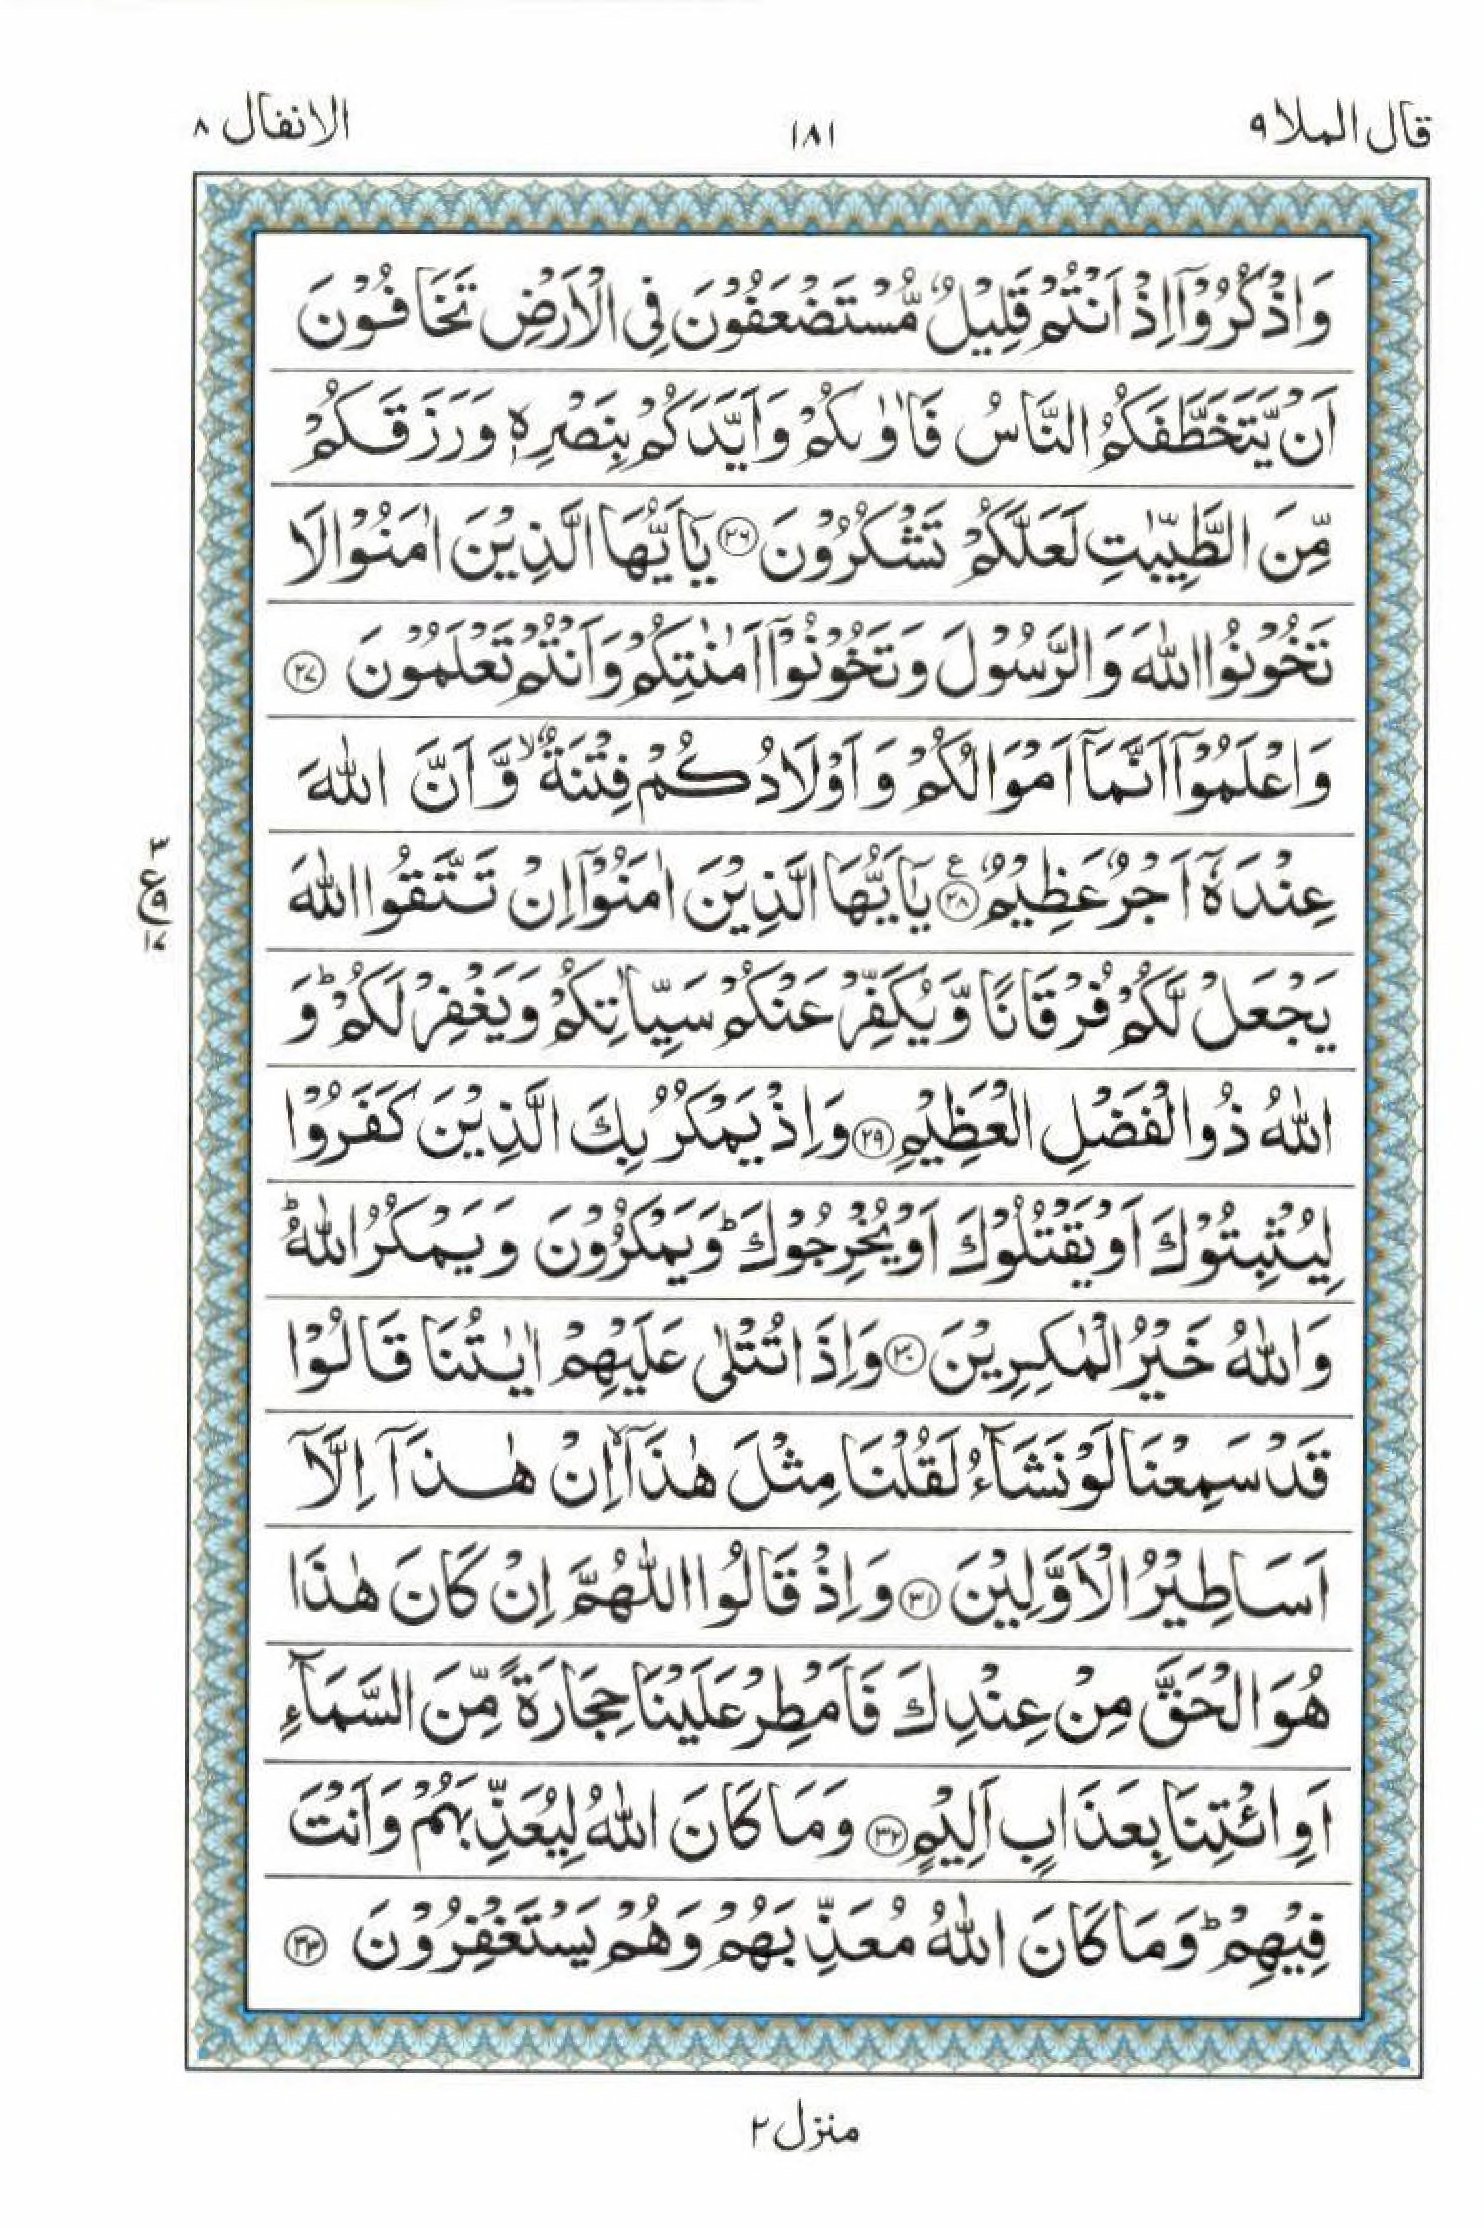 قال الملا ٩
١٨١
الانفال ٨
وَاذْكُرُوْۤا اِذْ اَنْتُمْ قَلِيْلٌ مُّسْتَضْعَفُوْنَ فِي الْاَرْضِ تَخَافُوْنَ
اَنْ يَّتَخَطَّفَكُمُ النَّاسُ فَاٰوٰىكُمْ وَاَيَّدَكُمْ بِنَصْرِهٖ وَرَزَقَكُمْ
مِّنَ الطَّيِّبٰتِ لَعَلَّكُمْ تَشْكُرُوْنَ ۝٢٦ يٰۤاَيُّهَا الَّذِيْنَ اٰمَنُوْا لَا
تَخُوْنُوا اللّٰهَ وَالرَّسُوْلَ وَتَخُوْنُوْۤا اَمٰنٰتِكُمْ وَاَنْتُمْ تَعْلَمُوْنَ ۝٢٧
وَاعْلَمُوْۤا اَنَّمَاۤ اَمْوَالُكُمْ وَاَوْلَادُكُمْ فِتْنَةٌ ۙ وَّاَنَّ اللّٰهَ
عِنْدَهٗۤ اَجْرٌ عَظِيْمٌ ۝٢٨ ع يٰۤاَيُّهَا الَّذِيْنَ اٰمَنُوْۤا اِنْ تَتَّقُوا اللّٰهَ
٣
ع
٩
١٧
يَجْعَلْ لَّكُمْ فُرْقَانًا وَّيُكَفِّرْ عَنْكُمْ سَيِّاٰتِكُمْ وَيَغْفِرْ لَكُمْ ؕ وَ
اللّٰهُ ذُو الْفَضْلِ الْعَظِيْمِ ۝٢٩ وَاِذْ يَمْكُرُ بِكَ الَّذِيْنَ كَفَرُوْا
لِيُثْبِتُوْكَ اَوْ يَقْتُلُوْكَ اَوْ يُخْرِجُوْكَ ؕ وَيَمْكُرُوْنَ وَيَمْكُرُ اللّٰهُ ؕ
وَاللّٰهُ خَيْرُ الْمٰكِرِيْنَ ۝٣٠ وَاِذَا تُتْلٰى عَلَيْهِمْ اٰيٰتُنَا قَالُوْا
قَدْ سَمِعْنَا لَوْ نَشَآءُ لَقُلْنَا مِثْلَ هٰذَاۤ ۙ اِنْ هٰذَاۤ اِلَّاۤ
اَسَاطِيْرُ الْاَوَّلِيْنَ ۝٣١ وَاِذْ قَالُوا اللّٰهُمَّ اِنْ كَانَ هٰذَا
هُوَ الْحَقَّ مِنْ عِنْدِكَ فَاَمْطِرْ عَلَيْنَا حِجَارَةً مِّنَ السَّمَآءِ
اَوِ ائْتِنَا بِعَذَابٍ اَلِيْمٍ ۝٣٢ وَمَا كَانَ اللّٰهُ لِيُعَذِّبَهُمْ وَاَنْتَ
فِيْهِمْ ؕ وَمَا كَانَ اللّٰهُ مُعَذِّبَهُمْ وَهُمْ يَسْتَغْفِرُوْنَ ۝٣٣
منزل ٢